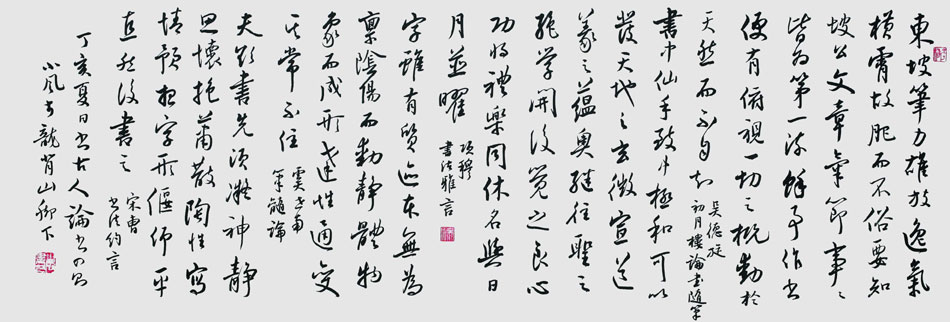 東坡筆力雄放逸氣
橫霄故肥而不俗要知
坡公文章氣節事事
皆為第一流餘事作書
便有俯視一切之概動於
天然而不自知
吳德旋
初月樓論書隨筆
書中仙手致中極和可以
發天地之玄微宣道
義之蘊奧繼往聖之
絕學開後覺之良心
功將禮樂同休名與日
月並曜
項穆
書法雅言
字雖有質迹本無為
稟陰陽而動靜體物
象而成形達性通變
其常不住
虞世南
筆髓論
夫欲書先須凝神靜
思懷抱蕭散陶性寫
情預想字形偃仰平
直然後書之
宋曹
書法約言
丁亥夏日書古人論書四則
小風於龍首山腳下